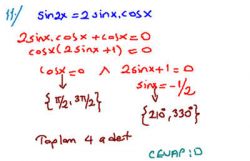 11/ sin2x = 2sinx.cosx
2sinx.cosx + cosx = 0
cosx(2sinx+1) = 0
cosx = 0 ∧ 2sinx+1 = 0
sinx = -1/2
{π/2, 3π/2} {210°, 330°}
Toplam 4 adet
CEVAP: D